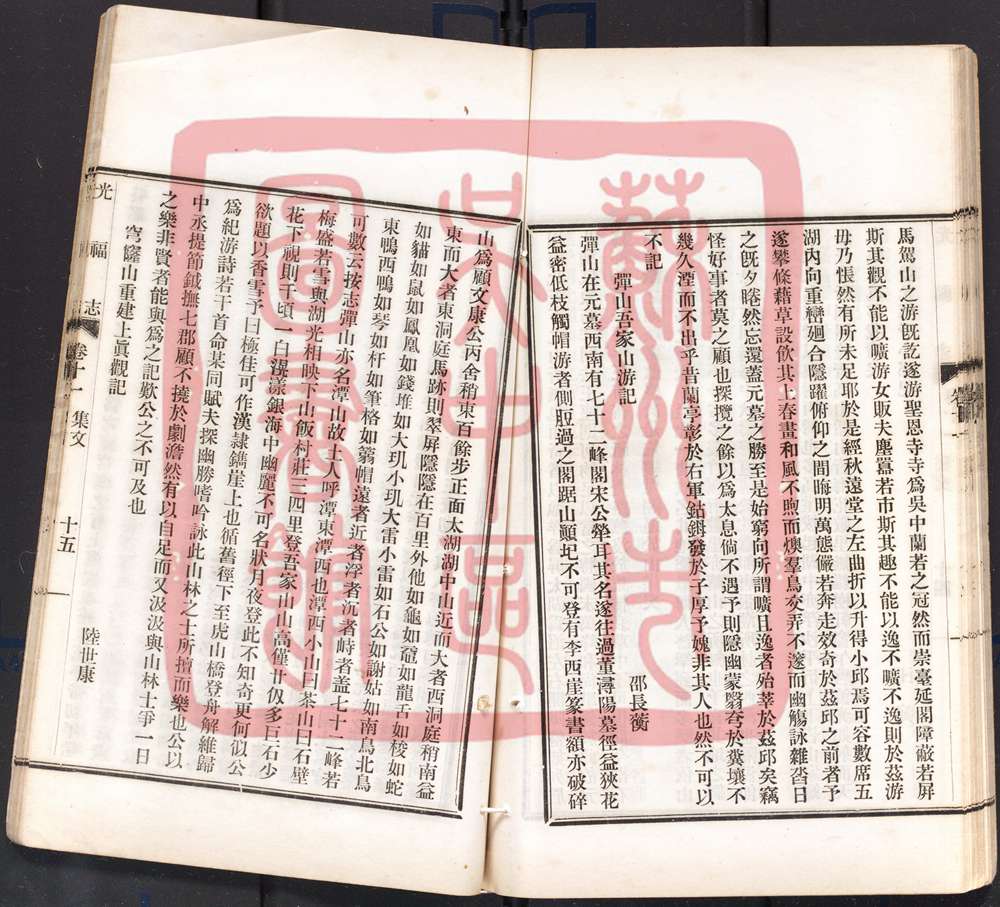 馬駕山之游旣訖遂游聖恩寺寺爲吳中蘭若之冠然而崇臺延閣障蔽若屏
斯其觀不能以曠游女販夫塵囂若市斯其趣不能以逸不曠不逸則於茲游
毋乃悵然有所未足耶於是經秋遠堂之左曲折以升得小邱焉可容數席五
湖內向重巒廻合隱躍俯仰之間晦明萬態儼若奔走效奇於茲邱之前者予
遂攀條藉草設飲其上春晝和風不煦而燠羣鳥交弄不邃而幽觴詠雜沓日
之旣夕睠然忘還蓋元墓之勝至是始窮向所謂曠且逸者殆莘於茲邱矣竊
怪好事者莫之顧也探攬之餘以爲太息倘不遇予則隱幽蒙翳夸於糞壤不
幾久湮而不出乎昔蘭亭彰於右軍鈷鉧發於子厚予媿非其人也然不可以
不記
彈山吾家山游記
邵長蘅
彈山在元墓西南有七十二峰閣宋公犖耳其名遂往過董潯陽墓徑益狹花
益密低枝觸帽游者側脰過之閣踞山顚圮不可登有李西崖篆書額亦破碎
山爲顧文康公丙舍稍東百餘步正面太湖湖中山近而大者西洞庭稍南益
東而大者東洞庭馬跡則翠屏隱隱在百里外他如龜如黿如龍舌如梭如蛇
如貓如鼠如鳳凰如錢堆如大玑小玑大雷小雷如石公如謝姑如南鳥北鳥
東鴨西鴨如琴如杆如筆格如篛帽遠者近者浮者沉者峙者蓋七十二峰若
可數云按志彈山亦名潭山故土人呼潭東潭西也潭西小山曰茶山曰石壁
梅盛若雪與湖光相映下山飯村莊三四里登吾家山山高僅廿仭多巨石少
花下視則千頃一白滉漾銀海中幽麗不可名狀月夜登此不知奇更何似公
欲題以香雪予曰極佳可作漢隷鐫崖上也循舊徑下至虎山橋登舟解維歸
爲紀游詩若干首命某同賦夫探幽勝嗜吟詠此山林之士所擅而樂也公以
中丞提節鉞撫七郡顧不撓於劇澹然有以自足而又汲汲與山林士爭一日
之樂非賢者能與爲之記歎公之不可及也
穹窿山重建上眞觀記
陸世康
光福志
卷十一
集文
十五